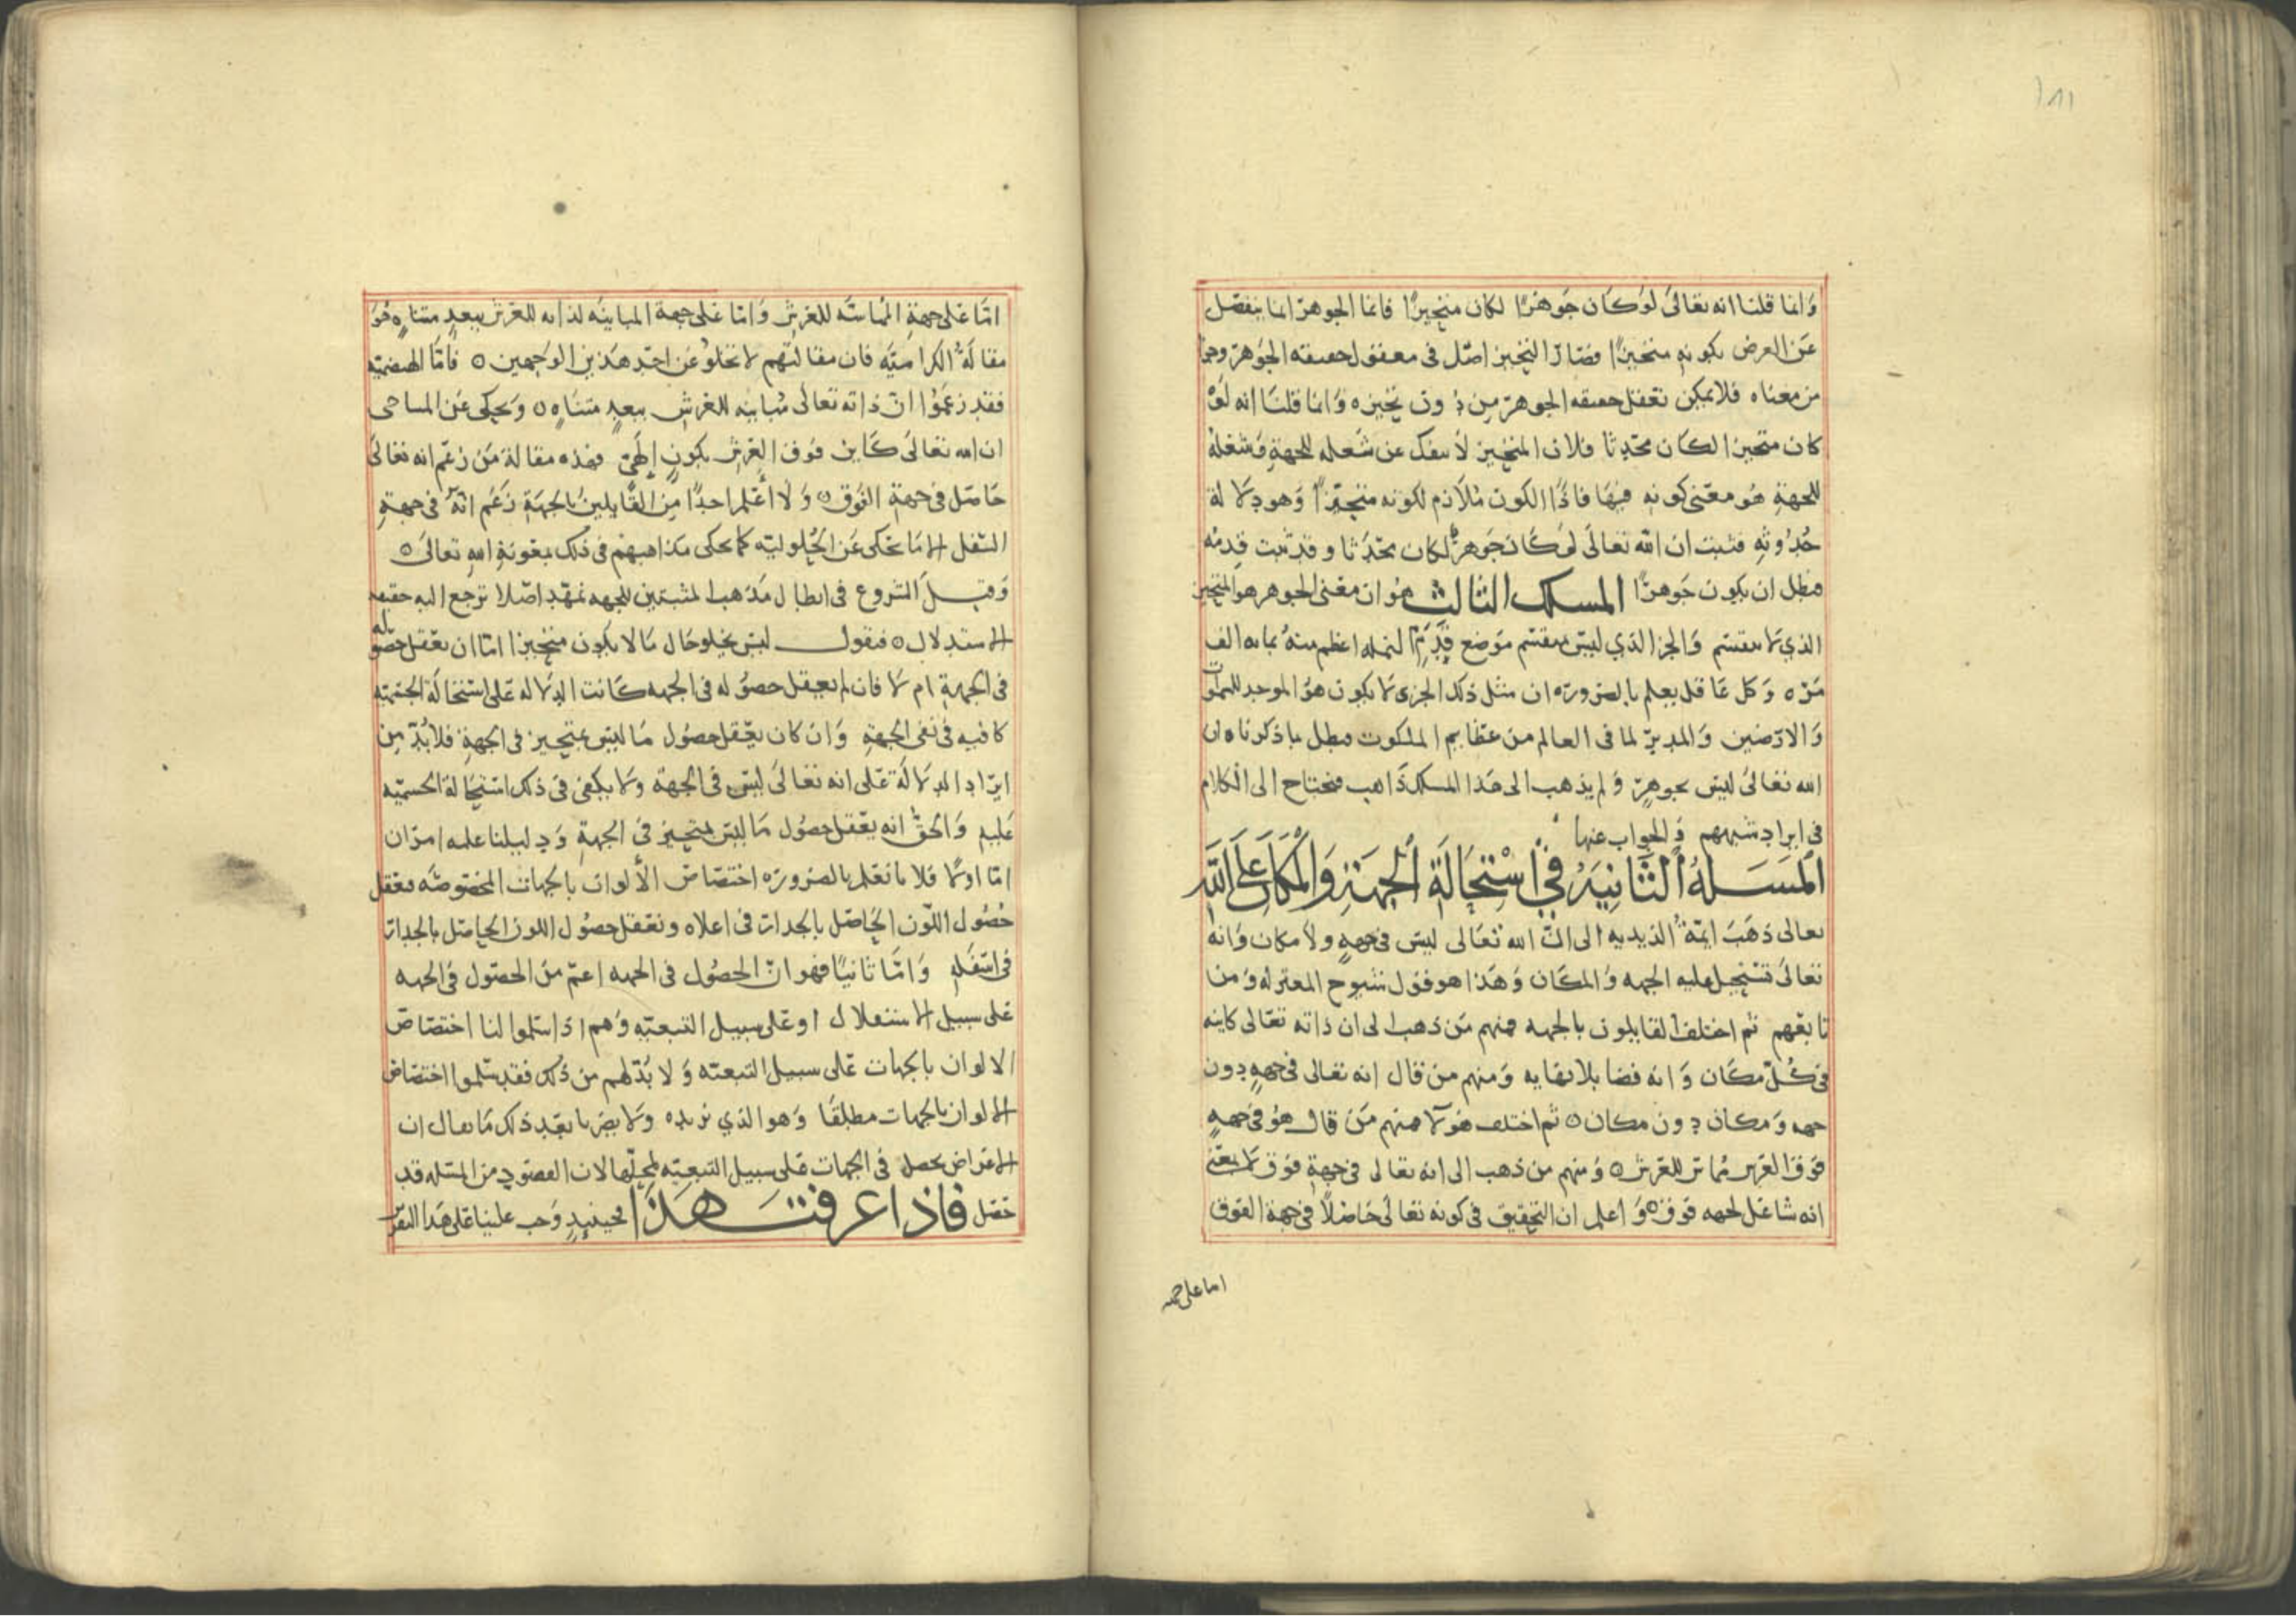 ١٨١
وَانما قلنا انه تعالىَ لوَ كان جَوهرًا لكان متحيزًا فانما الجوهر انما ينفصل
عَن العرض بكونه متحيزًا فصَار التحيز اصل فى معقول حصصه الجوهر وجزا
من معناه فلا يمكن تعقل حصصه الجوهر من دون تحيزه وَانما قلنَا انه لَوْ
كان متحيزا لكَان محَدثا فلان المتحيز لا ينفك عن شَغله للجهةِ وَشغلهُ
للجهةِ هُو معنى كونه فيهَا فاذًا الكون مُلاَزم لكونه متحيّزًا وَهو دلالة
حُدُوثهِ فثبت ان الله تعالى لَو كَان جَوهرًا لكان محَدَثا وقد ثبت قِدمُه
فبطل ان يكون جَوهرًا المسلك الثالث هُو ان معَنى الجوهر هو المتحيز
الذي لا ينقسَم وَالجزا الذي ليسَ بمنقسَم مَوضع النمله اعظم منهُ بمايه الف
مَرّه وَكل عَاقل يعلم بالضَرورَه ان مثل ذلك الجزى لا يكون هوُ الموجد للسموات
وَالارَضين وَالمدبرّ لما فى العالم من عظايم الملكوت فبطل بما ذكرناه ان
الله تعالىَ ليسَ بجوهرٍ وَلم يذهب الى هَذا المسلك ذَاهب فيحتاج الى الكلام
فى ايراد شبههم وَالجواب عنها
المَسَلةُ الثَّانِيَةُ فِي اسْتِحَالَةِ الْجِهَةِ وَالْمَكَانِ عَلَى اللَّهِ
تعالى ذهَبَ ايمّةُ الذيديه الى انّ الله تعَالى ليسَ فى جهةٍ ولاَ مكان وَانه
تعالىَ تستحيل عليه الجهه وَالمكَان وَهَذا هو قول شيوح المعتزله وَمن
تابعَهم ثم اختلف القايلون بالجهه فمنهم مَن ذهب الى ان ذاته تعَالى كاينه
فى كُلّ مكَان وَانه فضا بلا نهايه وَمنهم من قال انه تعالى فى جهةٍ دون
جهه وَمكان دون مكان ٥ ثم اختلف هَولا فمنهم مَن قال هوُ فى جهةٍ
فَوق العَرش مُماسّ للعَرش ٥ وَمنهم من ذهب الى انه تعالى فى جهةٍ فوَق لا بمعَنى
انه شاغل لجهه فَوق ٥ وَاعلم ان التحقيق فى كونه تعَالىَ حَاصلاً فى جهة الفوق
اما على جهه
امّا عَلى جهةِ المُماسّه للعَرش وَامّا عَلى جهة المباينَه لذاته للعَرش ببعدٍ متناهٍ فهو
مقالَةُ الكراميّه فان مقالتَهم لا تخلوُ عَن احَد هَذين الوَجهين ٥ فامَّا الهيصميّه
فقد زعمَوُا انّ ذاته تعَالى مُباينه للعَرش ببعدٍ متنَاهٍ ٥ وَيحكى عَن
ان الله تعَالى كَاين فوَق العَرش بكونٍ إلَهيّ فهذه مقالة مَن زعَم انه تعَالىَ
حَاصَل فى جهة الفوُق ٥ وَلاَ أعلم احدًا مِن القايلين بالجهَة زَعَم انّهُ فى جهةِ
السّفل الا مَا يحكى عَن الحُلوليّه كما يحكى مذاهبهم فى ذلك بمعَونةِ الله تعَالى ٥
وَقبل الشروع فى ابطال مَذهب المثبتين للجهه نمهّد اصَلا ترجع اليه حقيقه
الاستدلال ٥ فنقول ليسَ يخلو حَال مَا لا يكون متحيزا امّا ان يعَقل حصَوله
فى الجهةِ ام لا فان لم يعقل حصوُله فى الجهه كَانت الدلاله عَلى استحالَة الجسَميّه
كافيه فى نفى الجهةِ وَان كان يعَقل حصُول مَا ليسَ بمتحيز فى الجهةِ فلا بُدّ مِن
ايرَاد الدلالَة عَلى انه تعَالىَ ليسَ فى الجهة وَلا يكفى فى ذلك استحَالة الجسَميّه
عَليه وَالحقّ انه يعَقل حصُول مَا ليسَ بمتحيز فى الجهةِ وَدليلنا عليه امرَان
امّا اولًا فلانا نعَلم بالضرورَه اختصَاص الألوان بالجهات المخصُوصَه فنعقل
حُصُول اللّون الحَاصَل بالجدار فى اعلاه ونعَقل حصُول اللون الحاصَل بالجدار
فى اسَفلهِ وَامّا ثانيًا فهو انّ الحصُول فى الجهه اعمّ مَن الحصَول فى الجهه
عَلى سبيل الاستقلال او عَلى سبيل التبعيّه وَهم اذا سَلموا لنا اختصَاصَ
الالوان بالجهات عَلى سبيل التبعيّه وَلا بُدّ لهم من ذلك فقد سَلموا اختصَاص
الالوان بالجهات مطلقًا وَهو الذي نريده وَلا يضَرنا بعَد ذلك مَا يقال ان
الاعَراض تحصل فى الجهات عَلى سبيل التبعيّه لمحَلّها لان المقصود من المسَله قد
حصَل فاذا عرفت هَذَا فحينيدٍ وَجب علينا عَلى هَذا التقرير